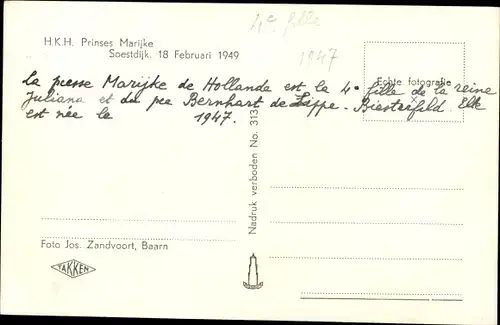 4e fille
H.K.H. Prinses Marijke
Soestdijk, 18 Februari 1949
1947
Echte fotografie
La pcesse Marijke de Hollande est la 4e fille de la reine
Juliana et du pce Bernhart de Lippe-Biesterfeld. Elle
est née le 1947.
Nadruk verboden No. 313
Foto Jos. Zandvoort, Baarn
TAKKEN